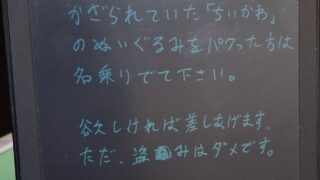 かざられていた「ちいかわ」
のぬいぐるみをパクった方は
名乗りでて下さい。
欲しければ差しあげます、
ただ、盗みはダメです。